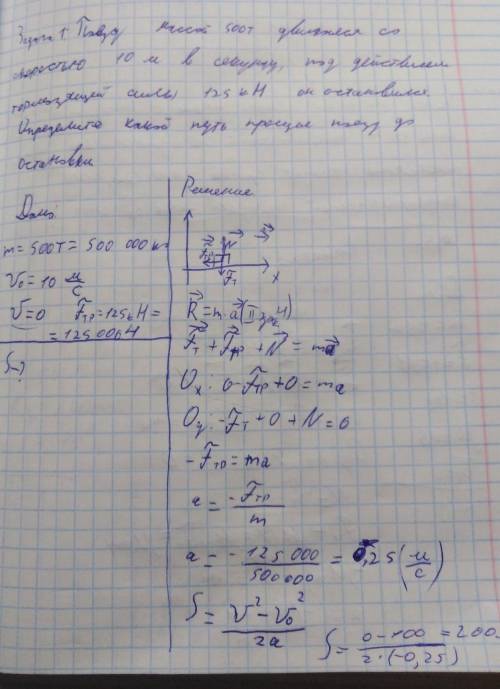 Задача 1 Поезд массой 500т двигаясь со
скоростью 10 м в секунду, под действием
тормозящей силы 125 кН он остановился
Определите какой путь прошел поезд до
остановки
Дано
m = 500т = 500 000 кг
V₀ = 10 м/с
V = 0 Fтр = 125кН =
= 125000Н
S - ?
Решение
N
Fт
x
R = m a (II зак. Н)
Fт + Fтр + N = ma
Ox: 0 - Fтр + 0 = ma
Oy: -Fт + 0 + N = 0
- Fтр = ma
a = -Fтр / m
a = - 125 000 / 500 000 = 0,25 (м/с)
S = V² - V₀² / 2a
S = 0 - 100 / 2·(-0,25) = 200